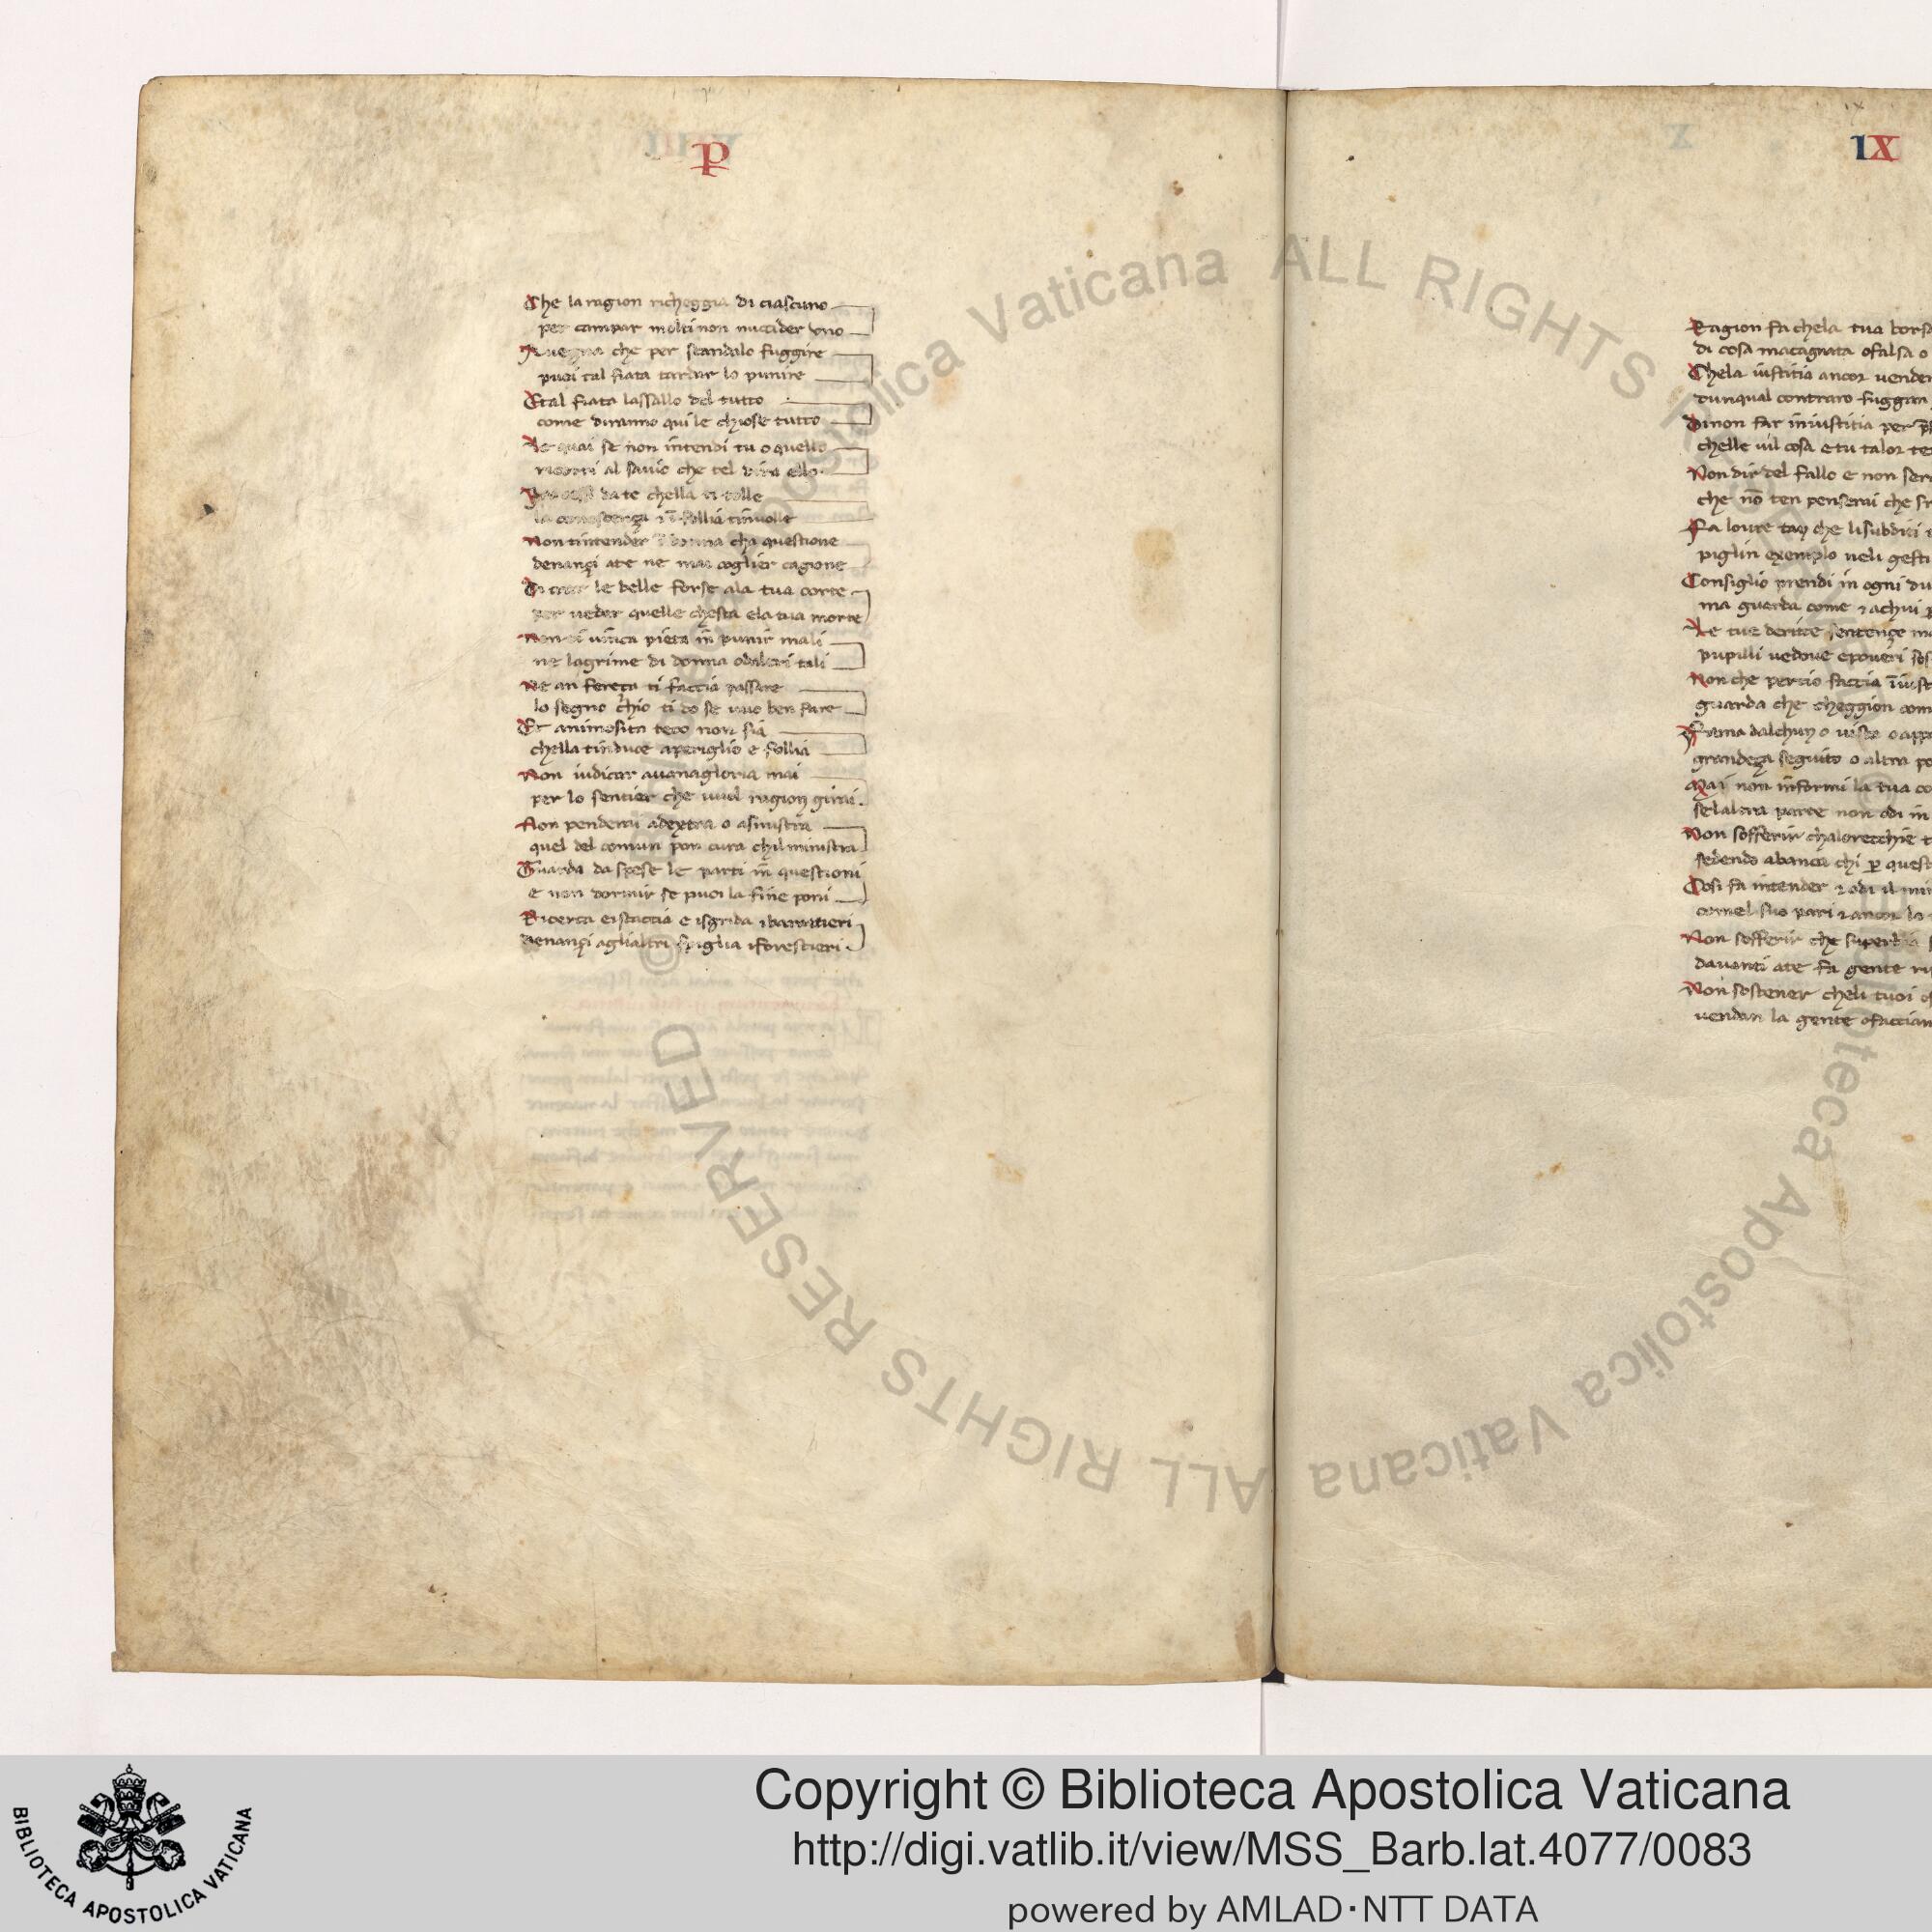 P
Che la ragion richeggia di ciascuno
per campar molti non uccider uno
che per scandalo fuggire
puoi tal fiata tardar lo punire
Et tal fiata lassallo del tutto
come diranno qui le chiose tutto
Le quai se non intendi tu o quello
ricorri al savio che tel dira ello.
da te chella ti tolle
la conoscenza follia
Non tintender donna cha questione
denançi ate ne mai coglier cagione
le belle forse ala tua corte
per veder quelle chesta ela tua morte
Non ti vinca pieta in punir mali
ne lagrime di donna o daltri tali
Ne an fereça ti faccia passare
lo segno chio ti do se vuo ben fare
Et animosita teco non sia
chella tinduce aperiglio e follia
Non iudicar avanagloria mai
per lo sentier che vuol ragion girai.
Non penderai adextra o asinistra
quel del comun pon cura chil ministra
Guarda da spese le parti in questioni
e non dormir se puoi la fine poni
Ricerca eiscaccia e isgrida ibarattieri
denançi aglialtri spiglia iforestieri.
IX
Ragion fa chela tua borsa
di cosa macagnata ofalsa o
Chela iustitia ancor vender
dunqual contraro fuggan
Di non far iniustitia per
chelle vil cosa e tu talor te
Non dir del fallo e non ser
che nō ten penserai che sr
Fa loure tay che lisubditi
piglin exemplo neli gesti
Consiglio prendi in ogni du
ma guarda come
Le tue deritte sentençe ma
pupilli vedove epoveri sos
Non che percio faccia īiust
guarda che cheggion com
Fama dalchun o vista o app
grandeça seguito o altra po
Mai non informi la tua co
se laltra parte non odi in
Non sofferir chalorecchie t
sedendo abanca chi quest
Cosi fa intender odi il min
comel suo pari ancor lo
Non sofferir che superbia s
davanti ate fa gente ri
Non sostener cheli tuoi of
vendan la gente ofaccian
© Biblioteca Apostolica Vaticana ALL RIGHTS RESERVED
© Biblioteca Apostolica Vaticana ALL RIGHTS RESERVED
BIBLIOTECA APOSTOLICA VATICANA
Copyright © Biblioteca Apostolica Vaticana
http://digi.vatlib.it/view/MSS_Barb.lat.4077/0083
powered by AMLAD·NTT DATA